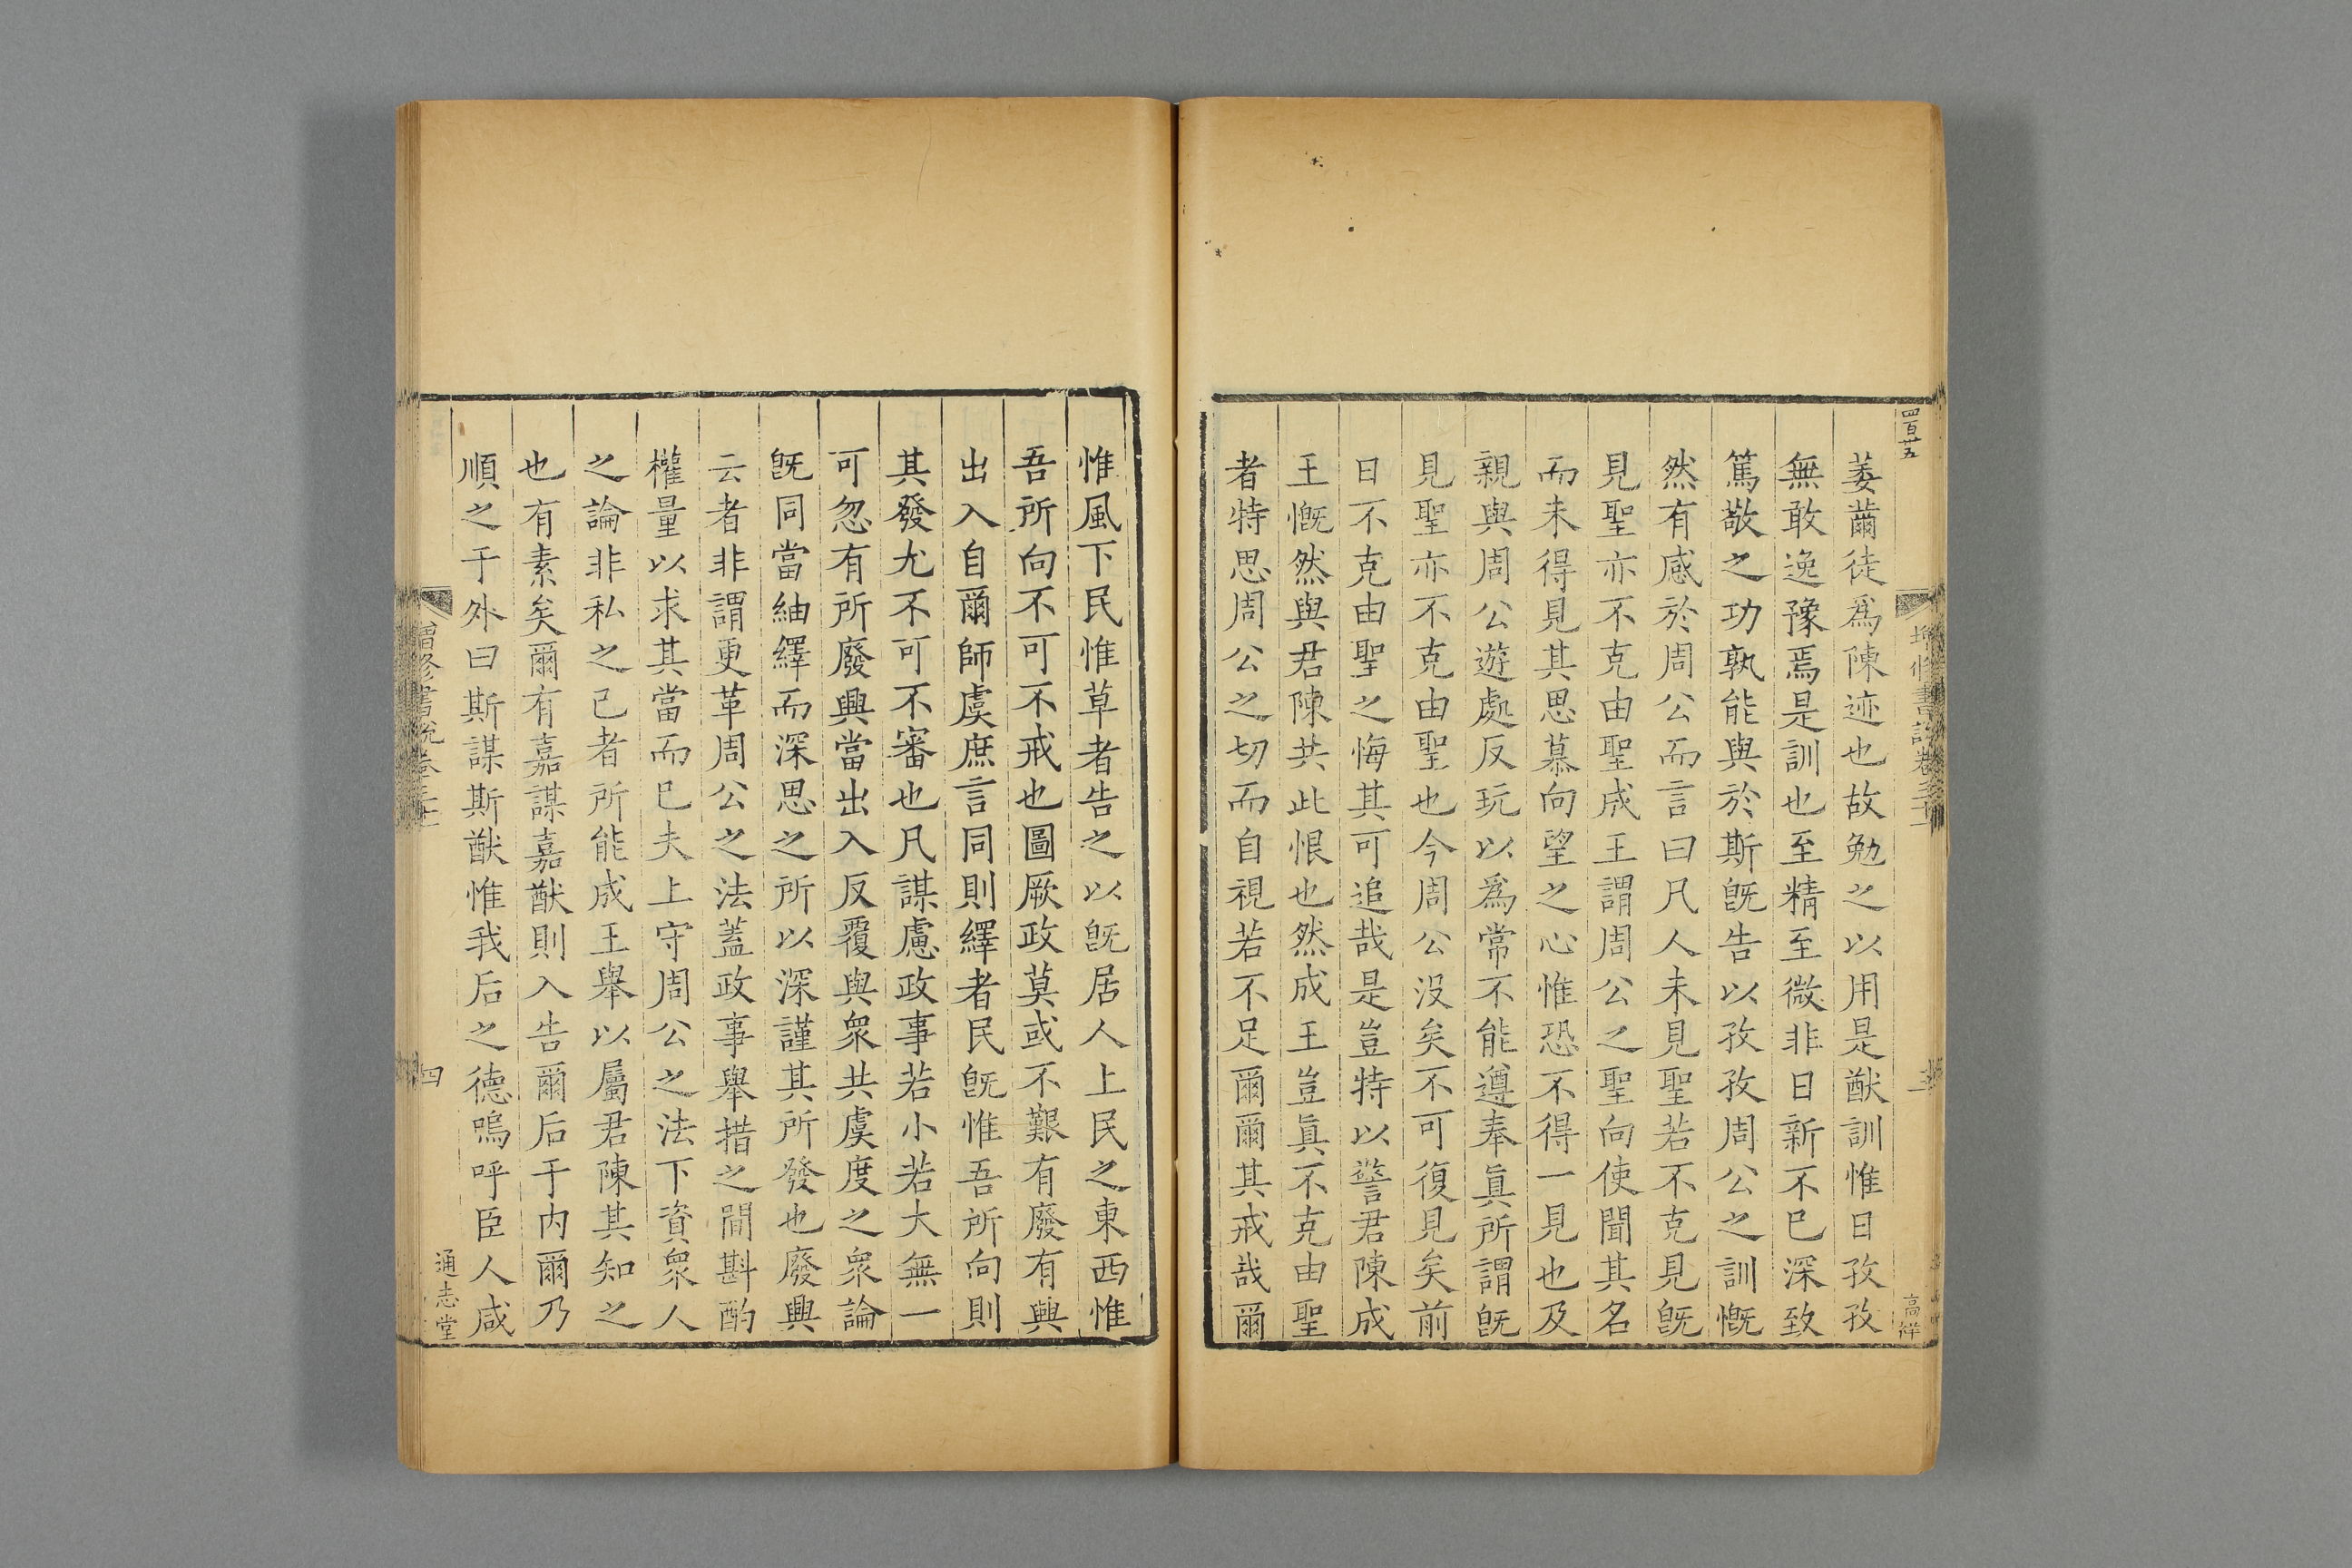 四百廿五
萎薾徒爲陳迹也故勉之以用是猷訓惟日孜孜
無敢逸豫焉是訓也至精至微非日新不已深致
篤敬之功孰能與於斯旣告以孜孜周公之訓慨
然有感於周公而言曰凡人未見聖若不克見旣
見聖亦不克由聖成王謂周公之聖向使聞其名
而未得見其思慕向望之心惟恐不得一見也及
親與周公遊處反玩以爲常不能遵奉眞所謂旣
見聖亦不克由聖也今周公沒矣不可復見矣前
日不克由聖之悔其可追哉是豈特以警君陳成
王慨然與君陳共此恨也然成王豈眞不克由聖
者特思周公之切而自視若不足爾爾其戒哉爾
高祥
惟風下民惟草者告之以旣居人上民之東西惟
吾所向不可不戒也圖厥政莫或不艱有廢有興
出入自爾師虞庶言同則繹者民旣惟吾所向則
其發尤不可不審也凡謀慮政事若小若大無一
可忽有所廢興當出入反覆與衆共虞度之衆論
旣同當紬繹而深思之所以深謹其所發也廢興
云者非謂更革周公之法蓋政事舉措之間斟酌
權量以求其當而已夫上守周公之法下資衆人
之論非私之己者所能成王舉以屬君陳其知之
也有素矣爾有嘉謀嘉猷則入告爾后于内爾乃
順之于外曰斯謀斯猷惟我后之德嗚呼臣人咸
增修書說卷三十一
四
通志堂